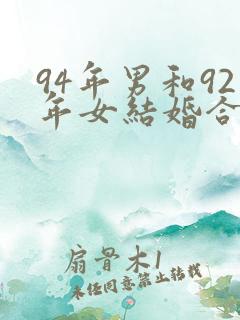 94年男和92
年女結婚合
扇骨木1
未任同意禁止転載